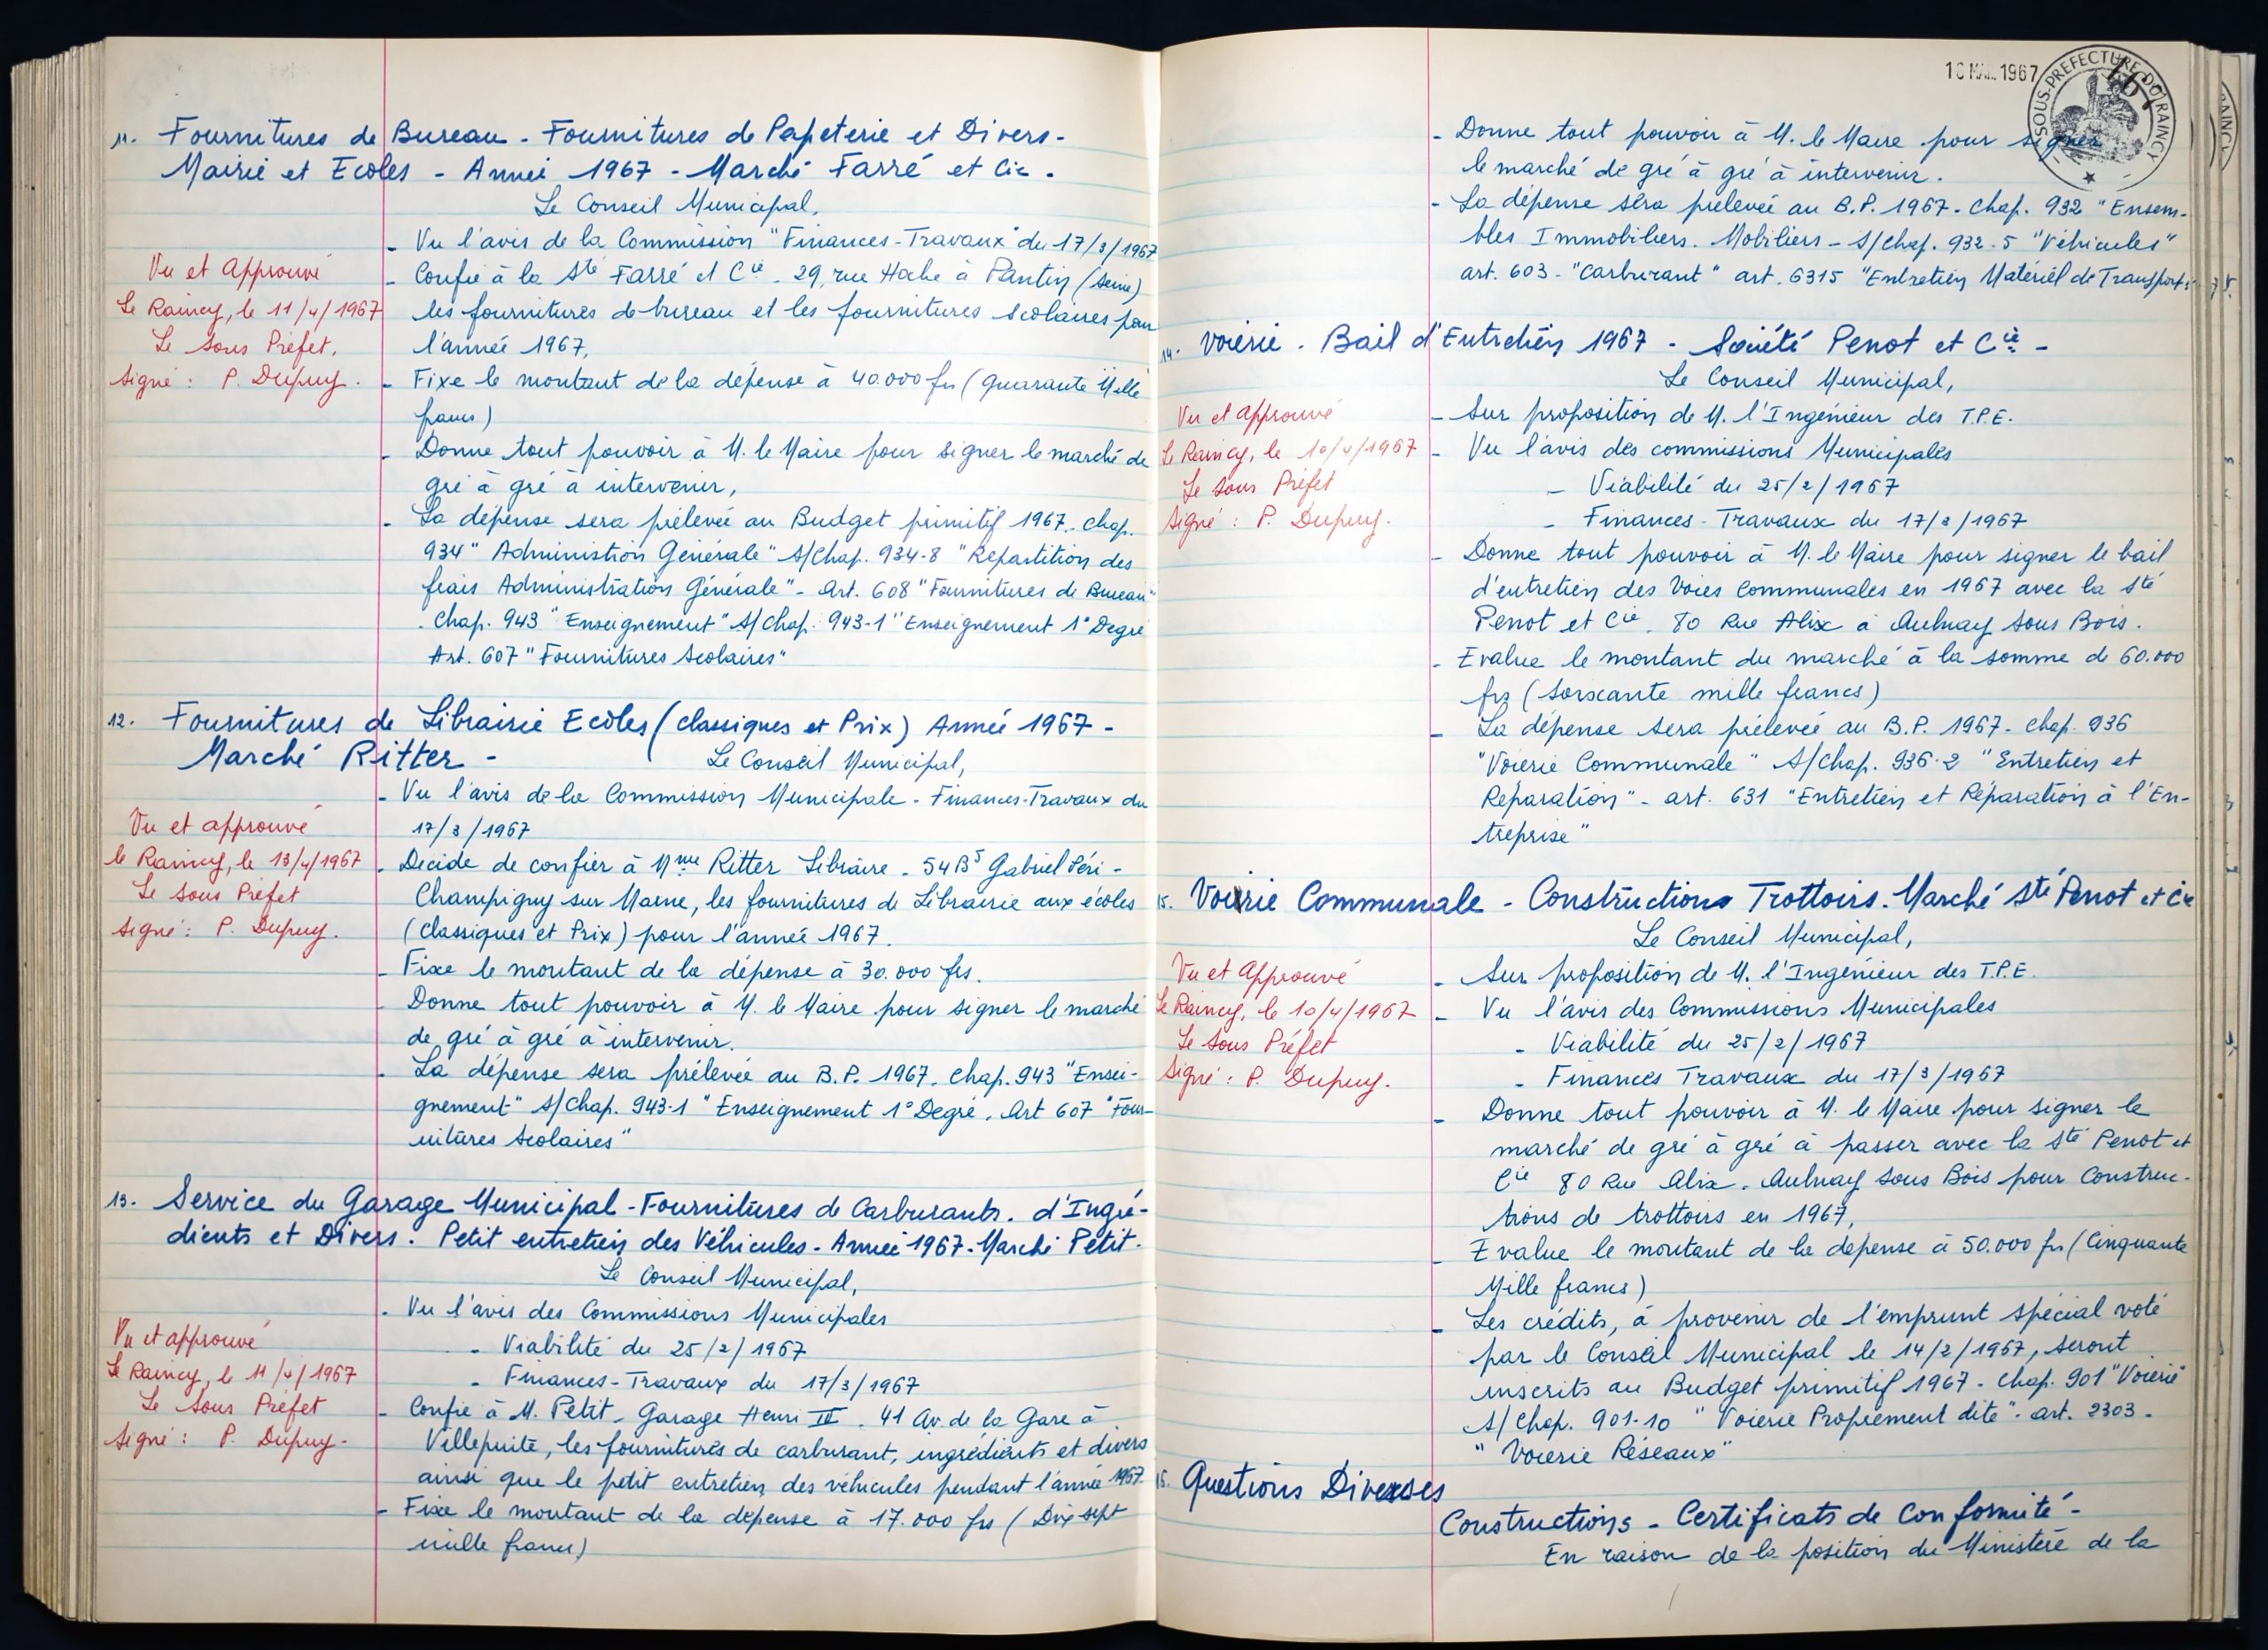 11. Fournitures de Bureau - Fournitures de Papeterie et Divers -
Mairie et Ecoles - Année 1967 - Marché Farré et Cie -
Le Conseil Municipal,
- Vu l'avis de la Commission "Finances-Travaux" du 17/3/1967
Vu et Approuvé
Le Raincy, le 11/4/1967
Le Sous Préfet,
Signé : P. Dupuy.
- Confie à la Sté Farré et Cie - 29, rue Hoche à Pantin (Seine)
les fournitures de bureau et les fournitures scolaires pour
l'année 1967,
- Fixe le montant de la dépense à 40.000 frs (Quarante Mille
francs)
- Donne tout pouvoir à M. le Maire pour signer le marché de
gré à gré à intervenir,
- La dépense sera prélevée au Budget primitif 1967. Chap.
934 "Administion Générale" S/Chap. 934-8 "Répartition des
frais Administration Générale" - Art. 608 "Fournitures de Bureau"
- Chap. 943 "Enseignement" S/Chap. 943-1 "Enseignement 1° Degré
Art. 607 "Fournitures Scolaires"
12. Fournitures de Librairie Ecoles (Classiques et Prix) Année 1967 -
Marché Ritter -
Le Conseil Municipal,
- Vu l'avis de la Commission Municipale - Finances-Travaux du
17/3/1967
Vu et approuvé
le Raincy, le 13/4/1967
Le Sous Préfet
Signé : P. Dupuy.
- Décide de confier à Mme Ritter Libraire - 54 Bd Gabriel Péri -
Champigny sur Marne, les fournitures de Librairie aux écoles
(Classiques et Prix) pour l'année 1967.
- Fixe le montant de la dépense à 30.000 frs.
- Donne tout pouvoir à M. le Maire pour signer le marché
de gré à gré à intervenir.
- La dépense sera prélevée au B.P. 1967. Chap. 943 "Ensei-
gnement" S/Chap. 943-1 "Enseignement 1° Degré. Art 607 "Four-
nitures Scolaires"
13. Service du Garage Municipal - Fournitures de Carburants. d'Ingré-
dients et Divers. Petit entretien des Véhicules - Année 1967 - Marché Petit.
Le Conseil Municipal,
- Vu l'avis des Commissions Municipales
- Viabilité du 25/2/1967
- Finances-Travaux du 17/3/1967
Vu et approuvé
Le Raincy, le 11/4/1967
Le Sous Préfet
Signé : P. Dupuy.
- Confie à M. Petit - Garage Henri IV. 41 Av. de la Gare à
Villepinte, les fournitures de carburant, ingrédients et divers
ainsi que le petit entretien des véhicules pendant l'année 1967.
- Fixe le montant de la dépense à 17.000 frs (Dix sept
mille francs)
1967
SOUS-PRÉFECTURE DU RAINCY
- Donne tout pouvoir à M. le Maire pour signer
le marché de gré à gré à intervenir.
- La dépense sera prélevée au B.P. 1967. Chap. 932 "Ensem-
bles Immobiliers. Mobiliers - S/Chap. 932-5 "Véhicules"
art. 603 - "Carburant" art. 6315 "Entretien Matériel de Transport"
14. Voierie - Bail d'Entretien 1967 - Société Penot et Cie -
Le Conseil Municipal,
- Sur proposition de M. l'Ingénieur des T.P.E.
- Vu l'avis des commissions Municipales
- Viabilité du 25/2/1967
- Finances - Travaux du 17/3/1967
Vu et approuvé
Le Raincy, le 10/4/1967
Le Sous Préfet
Signé : P. Dupuy.
- Donne tout pouvoir à M. le Maire pour signer le bail
d'entretien des Voies Communales en 1967 avec la Sté
Penot et Cie - 80 Rue Alix à Aulnay sous Bois.
- Evalue le montant du marché à la somme de 60.000
frs (Soixante mille francs)
- La dépense sera prélevée au B.P. 1967 - Chap. 936
"Voierie Communale" S/Chap. 936-2 "Entretien et
Réparation" - art. 631 "Entretien et Réparation à l'En-
treprise"
15. Voirie Communale - Constructions Trottoirs. Marché Sté Penot et Cie
Le Conseil Municipal,
- Sur proposition de M. l'Ingénieur des T.P.E.
- Vu l'avis des Commissions Municipales
- Viabilité du 25/2/1967
- Finances Travaux du 17/3/1967
Vu et Approuvé
Le Raincy, le 10/4/1967
Le Sous Préfet
Signé : P. Dupuy.
- Donne tout pouvoir à M. le Maire pour signer le
marché de gré à gré à passer avec la Sté Penot et
Cie 80 Rue Alix. Aulnay sous Bois pour Construc-
tions de trottoirs en 1967,
- Evalue le montant de la dépense à 50.000 frs (Cinquante
Mille francs)
- Les crédits, à provenir de l'emprunt spécial voté
par le Conseil Municipal le 14/2/1967, seront
inscrits au Budget primitif 1967 - Chap. 901 "Voierie"
S/Chap. 901-10 "Voierie Proprement dite" - art. 2303 -
"Voierie Réseaux"
16. Questions Diverses
Constructions - Certificats de Conformité -
En raison de la position du Ministère de la